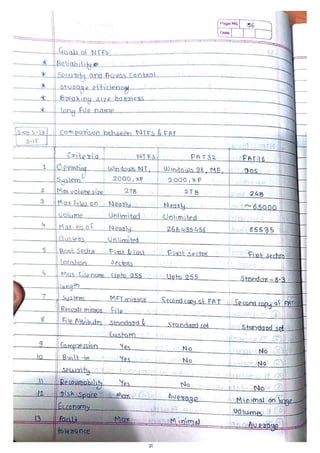 Page No. 56
Date
Goals of NTFS
* Reliability
* Security and Access Control
* Storage efficiency
* Breaking size barriers
* long File name
Comparison between NTFS & FAT
Criteria NTFS FAT32 FAT16
1 Operating Windows NT, Windows 98, ME, DOS
System 2000, XP 2000, XP
2 Max volume size 2TB 2TB 2GB
3 Max files on Nearly Nearly ~65000
volume Unlimited Unlimited
4 Max no of Nearly 268435456 65535
Clusters Unlimited
5 Boot Sector First & last First Sector First Sector
Location Sectors
6 Max filename Upto 255 Upto 255 Standar = 8.3
length
7 System MFT mirror Second copy of FAT Second copy of FAT
Records mirror File
8 File Attributes Standard & Standard set Standard set
Custom
9 Compression Yes No No
10 Built-in Yes No No
security
11 Recoverability Yes No No
12 Disk space Max Average Minimal on large
Economy volumes
13 Fault Max Minimal Average
tolerance
21